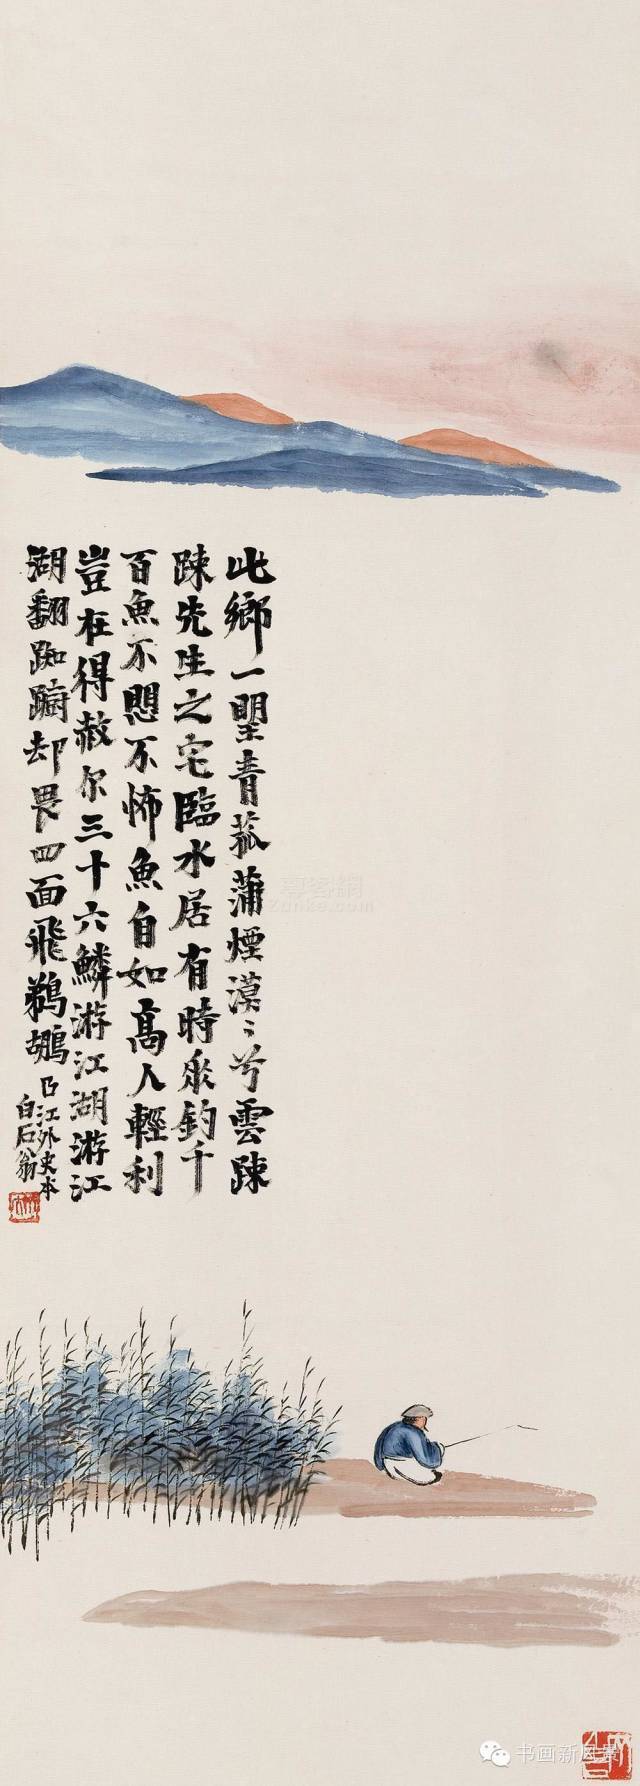 此鄉一望青菰蒲煙漠〻兮雲疎
疎先生之宅臨水居有時來釣千
百魚不愳不怖魚自如高人輕利
豈在得赦尔三十六鱗游江湖游江
湖翻踟蹰却畏四面飛鵜鶘
江外史本
白石翁
尊客網
zunke.com
书画新风景